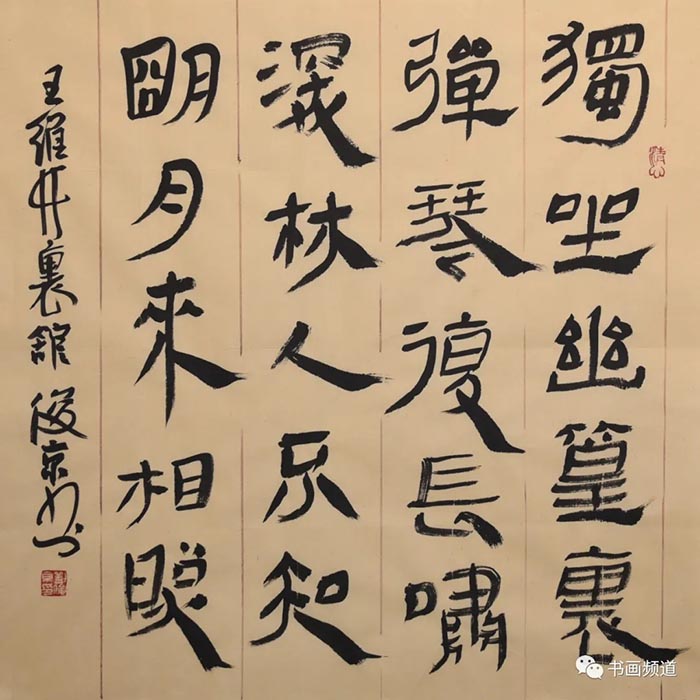 獨坐幽篁裏
彈琴復長嘯
深林人不知
明月來相照
王維竹裏館 俊京书
书画频道